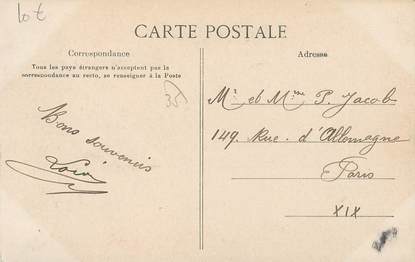 lot
CARTE POSTALE
Correspondance
Tous les pays étrangers n'acceptent pas la
correspondance au recto, se renseigner à la Poste
35
Bons souvenirs
Adresse
Mr et Mme P. Jacob
149. Rue. d'Allemagne
Paris
XIX